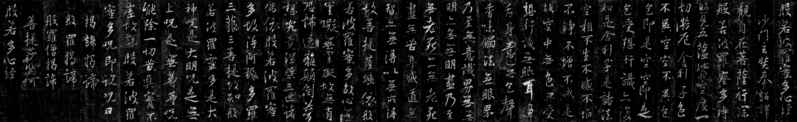 般若波羅蜜多心經
沙門玄奘奉詔譯
觀自在菩薩行深
般若波羅蜜多時
照見五蘊皆空度一
切苦厄舍利子色
不異空空不異色
色即是空空即是
色受想行識亦復
如是舍利子是諸法
空相不生不滅不垢
不淨不增不減是
故空中無色無受
想行識無眼耳鼻
舌身意無色聲
香味觸法無眼界
乃至無意識界無無
明亦無無明盡乃至
無老死亦無老死
盡無苦集滅道無
智亦無得以無所得
故菩提薩埵依般
若波羅蜜多故心無
罣礙無罣礙故無有
恐怖遠離顛倒夢
想究竟涅槃三世諸
佛依般若波羅蜜
多故得阿耨多羅
三藐三菩提故知般
若波羅蜜多是大
神咒是大明咒是無
上咒是無等等咒
能除一切苦真實不
虛故說般若波羅
蜜多咒即說咒曰
揭諦揭諦
般羅揭諦
般羅僧揭諦
菩提莎婆訶
般若多心經